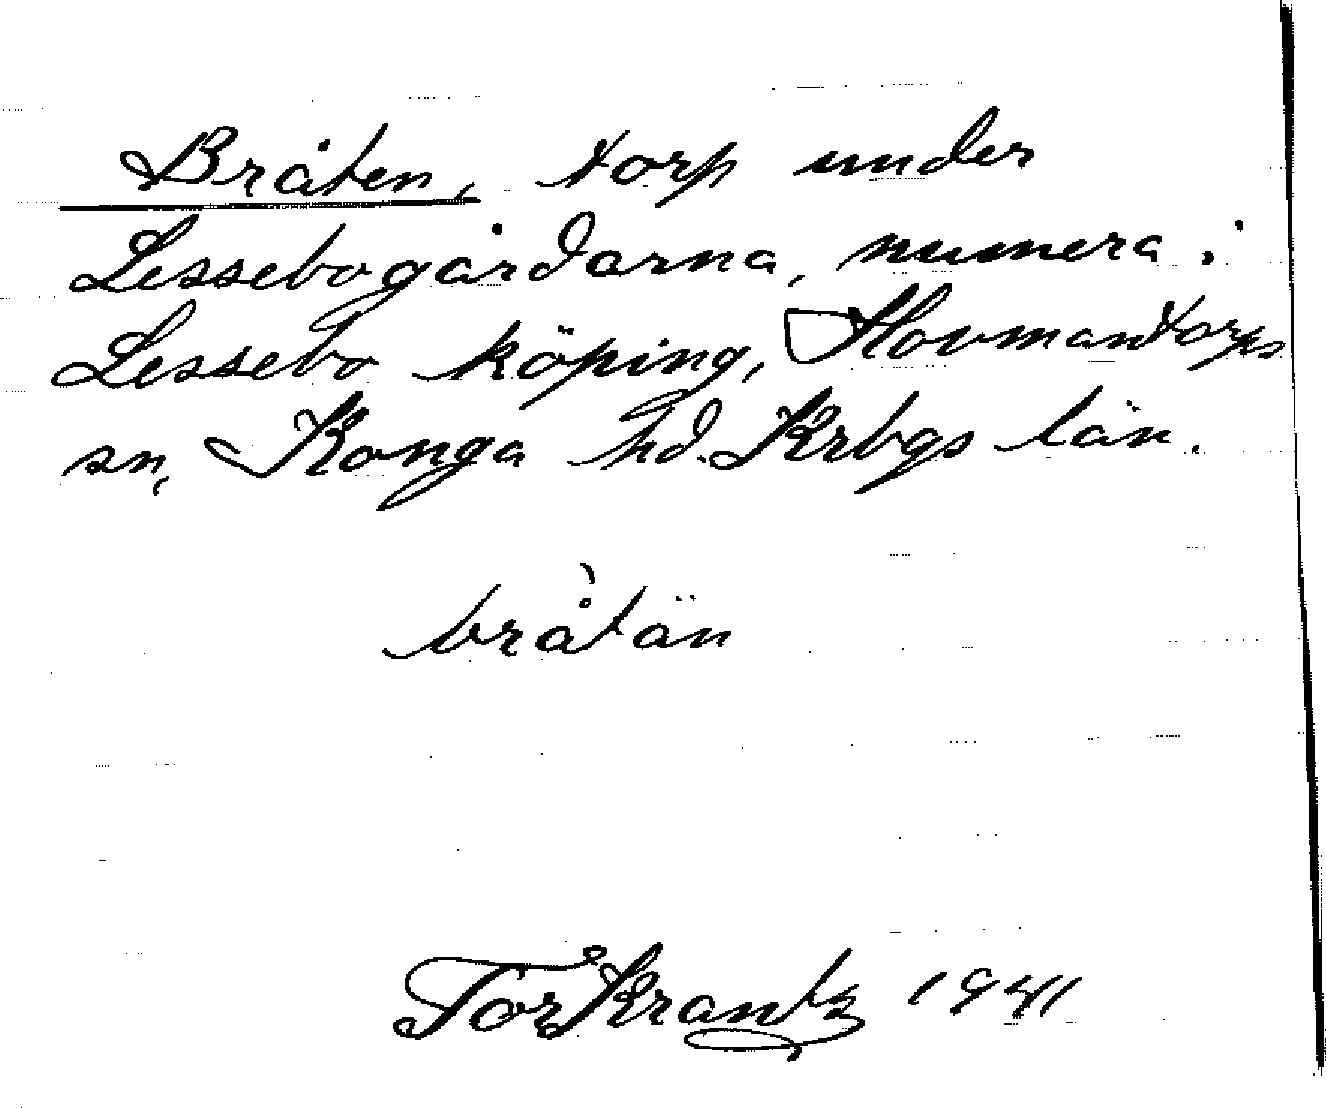 Bråten, torp under
Lessebogårdarna, numera i
Lessebo köping, Hovmantorps
sn, Konga hd. Krbgs län.
brå̀tän
Tor Krantz 1941